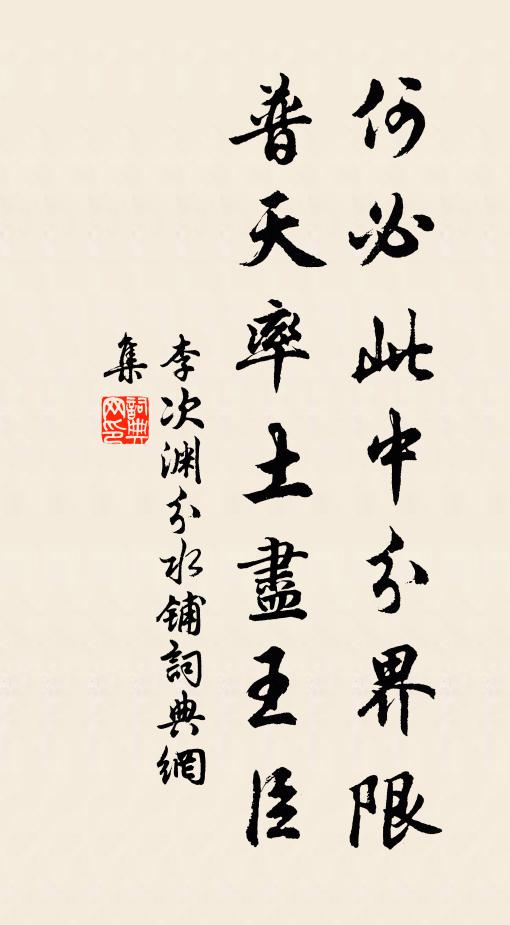 何必此中分界限
普天率土盡王臣
李次渊分水铺詞典網
集
詞典
网印